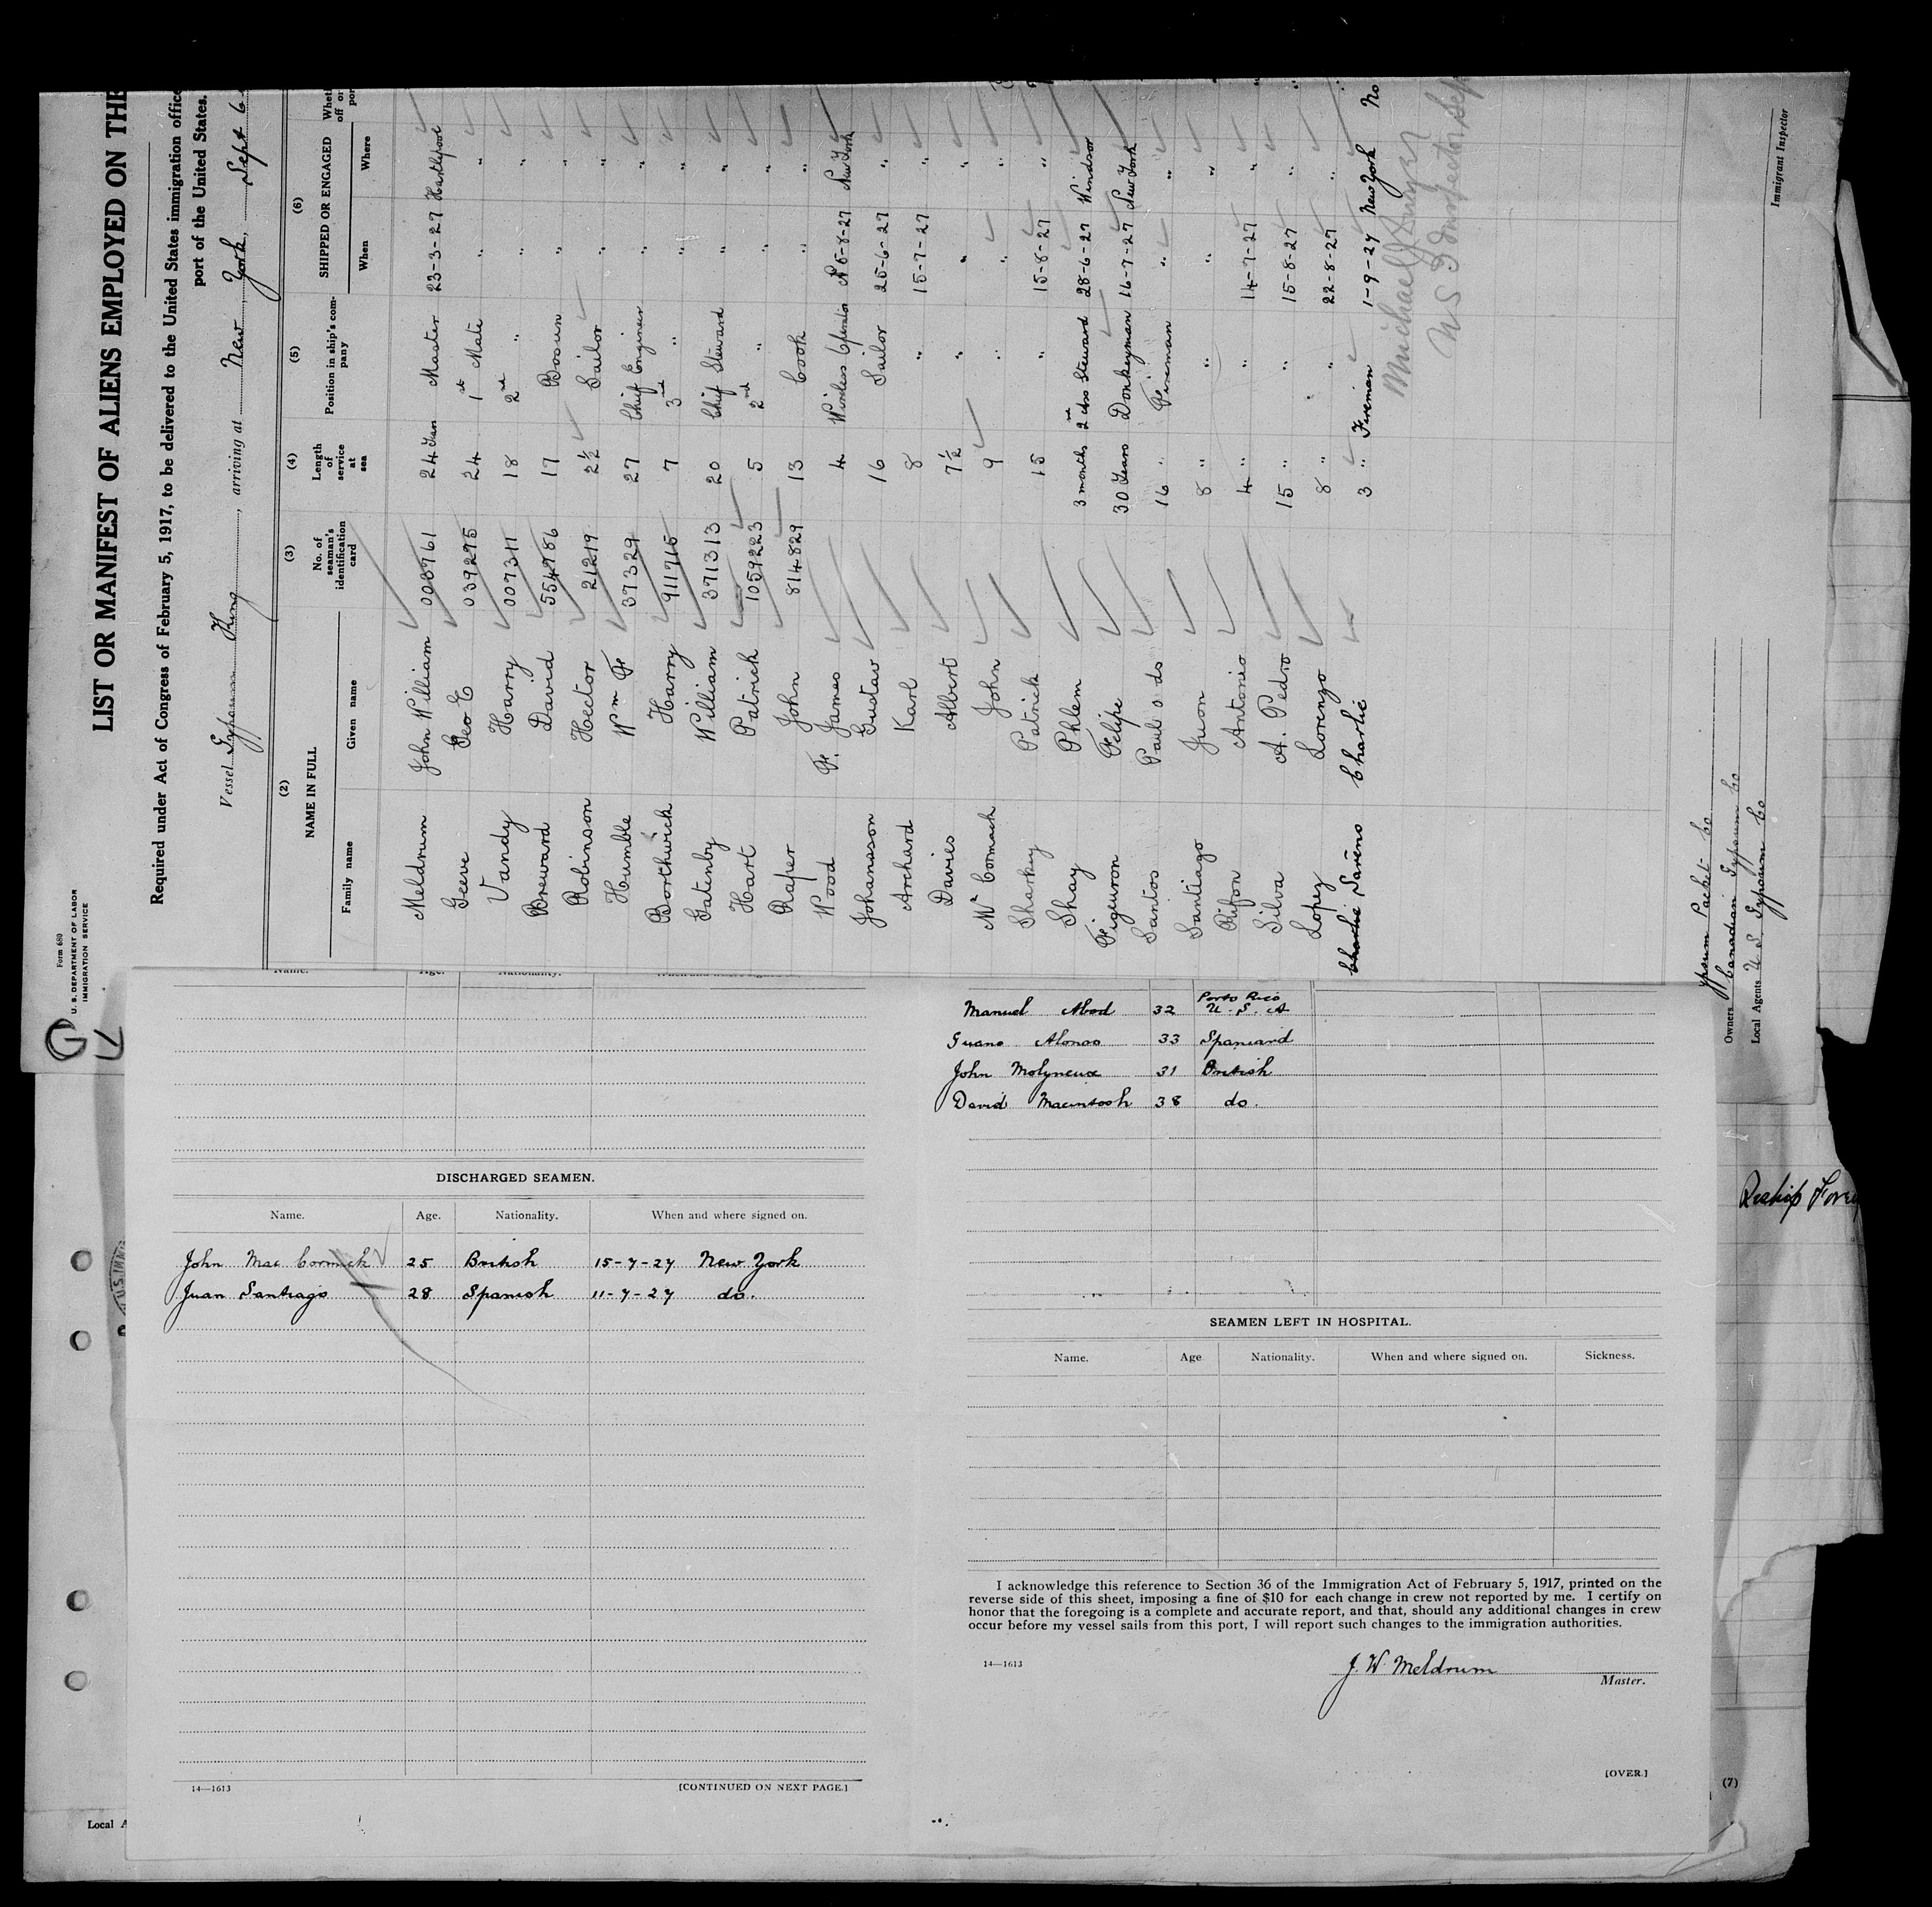 Form 680
U. S. DEPARTMENT OF LABOR
IMMIGRATION SERVICE
LIST OR MANIFEST OF ALIENS EMPLOYED ON THE
Required under Act of Congress of February 5, 1917, to be delivered to the United States immigration office
port of the United States.
Vessel Gypsum King, arriving at New York, Sept 6
(2) (3) (4) (5) (6)
NAME IN FULL
Family name Given name
No. of seaman's identification card
Length of service at sea
Position in ship's company
SHIPPED OR ENGAGED
When Where
Meldrum John William 008761 24 Years Master 23-3-27 Hartlepool
Geeve Geo E 039275 24 1st Mate " "
Vandy Harry 007311 18 2nd " " "
Breward David 554786 17 Bosun " "
Robinson Hector 21219 2½ Sailor " "
Humble Wm F 37329 27 Chief Engineer " "
Borthwick Harry 911715 7 3rd " " "
Gatenby William 371313 20 Chief Steward " "
Hart Patrick 1059223 5 2nd " " "
Raper John 814829 13 Cook " "
Wood F. James 4 Wireless Operator 5-8-27 New York
Johansson Gustav 16 Sailor 25-6-27 "
Archard Karl 8 " 15-7-27 "
Davies Albert 7½ " " "
Mc Cormack John 9 " " "
Sharkey Patrick 15 " 15-8-27 "
Shay Phlem 3 months 2nd class Steward 28-6-27 Windsor
Figeuron Felipe 30 Years Donkeyman 16-7-27 New York
Santos Paul o ds 16 " Fireman " "
Santiago Juon 8 " " " "
Rifon Antonio 4 " " 14-7-27 "
Silva A. Pedro 15 " " 15-8-27 "
Lopez Lorenzo 8 " " 22-8-27 "
Charlie Sarens Charlie 3 " Fireman 1-9-27 New York No
U S Inspector Sep
Immigrant Inspector
Gypsum Packet Co
Owners Canadian Gypsum Co
Local Agents U. S. Gypsum Co
Manuel Abad 32 Porto Rico U. S. A
Guano Alonso 33 Spaniard
John Molyneux 31 British
David Macintosh 38 do.
DISCHARGED SEAMEN.
Name. Age. Nationality. When and where signed on.
John Mac Cormick 25 British 15-7-27 New York
Juan Santiago 28 Spanish 11-7-27 do.
14—1613
[CONTINUED ON NEXT PAGE.]
SEAMEN LEFT IN HOSPITAL.
Name. Age Nationality. When and where signed on. Sickness.
I acknowledge this reference to Section 36 of the Immigration Act of February 5, 1917, printed on the
reverse side of this sheet, imposing a fine of $10 for each change in crew not reported by me. I certify on
honor that the foregoing is a complete and accurate report, and that, should any additional changes in crew
occur before my vessel sails from this port, I will report such changes to the immigration authorities.
14—1613
J. W. Meldrum
Master.
[OVER.]
(7)
Reship
Local A